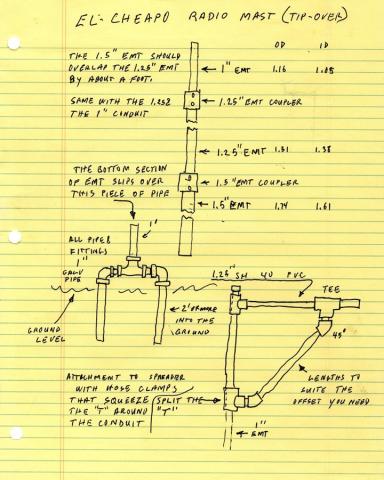 EL-CHEAPO RADIO MAST (TIP-OVER)
OD ID
THE 1.5" EMT SHOULD
OVERLAP THE 1.25" EMT
BY ABOUT A FOOT.
1" EMT 1.16 1.05
SAME WITH THE 1.25 &
THE 1" CONDUIT
1.25" EMT COUPLER
1.25" EMT 1.51 1.38
THE BOTTOM SECTION
OF EMT SLIPS OVER
THIS PIECE OF PIPE
1.5" EMT COUPLER
1.5" EMT 1.74 1.61
1"
ALL PIPE &
FITTINGS
1"
GALV
PIPE
GROUND
LEVEL
2' OR MORE
INTO THE
GROUND
1.25" SH 40 PVC
TEE
45°
LENGTHS TO
SUITE THE
OFFSET YOU NEED
ATTACHMENT TO SPREADER
WITH HOSE CLAMPS
THAT SQUEEZE
THE "T" AROUND
THE CONDUIT
SPLIT THE
"T"
1"
EMT